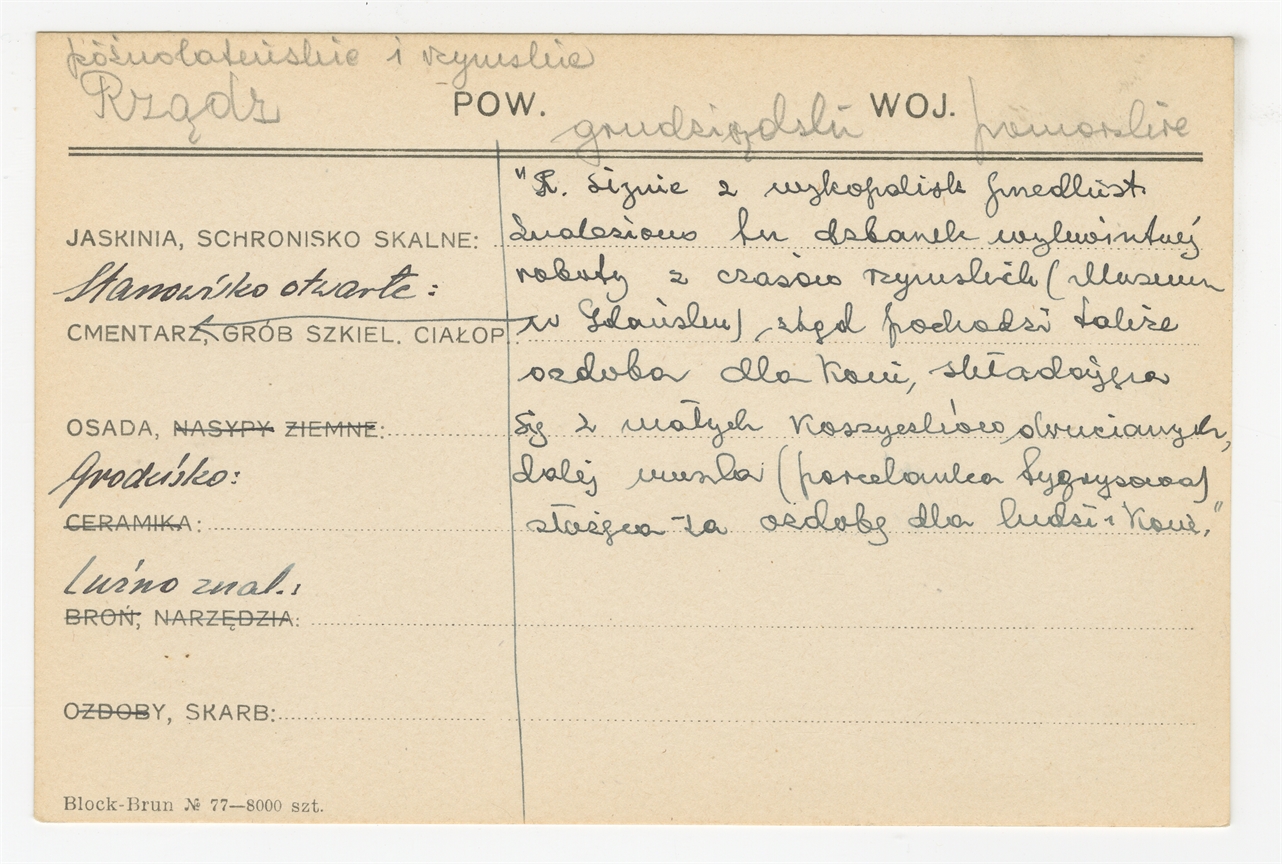 późnolateńskie i rzymskie
Rządz POW. grudziądzki WOJ. pomorskie
"R. słynie z wykopalisk
JASKINIA, SCHRONISKO SKALNE: Znaleziono tu dzbanek wykwintnej
Stanowisko otwarte: roboty z czasów rzymskich (Museum
CMENTARZ, GRÓB SZKIEL. CIAŁOP. w Gdańsku), stąd pochodzi także
ozdoba dla koni, składająca
OSADA, NASYPY ZIEMNE: się z małych koszyczków drucianych,
Grodzisko: dalej muszla (porcelanka tygrysowa)
CERAMIKA: służąca za ozdobę dla ludzi i koni."
Luźno znal.:
BROŃ, NARZĘDZIA:
OZDOBY, SKARB:
Block-Brun № 77—8000 szt.